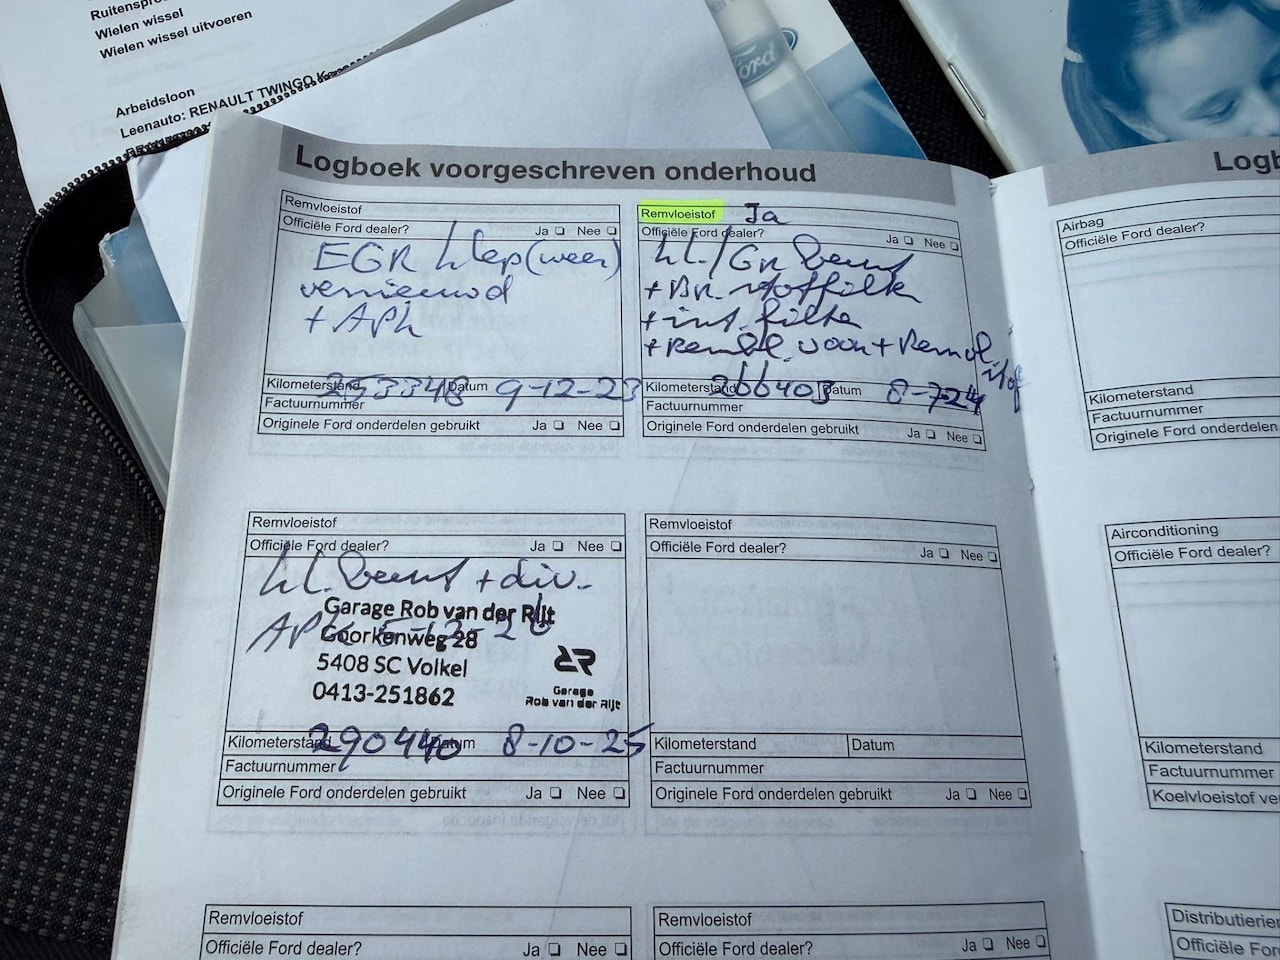 Wielen wissel
Wielen wissel uitvoeren
Arbeidsloon
Leenauto: RENAULT TWINGO
Ford
Logboek voorgeschreven onderhoud
Remvloeistof
Officiële Ford dealer? Ja Nee
EGR klep (weer)
vernieuwd
+ APK
Kilometerstand 253348 Datum 9-12-23
Factuurnummer
Originele Ford onderdelen gebruikt Ja Nee
Remvloeistof Ja
Officiële Ford dealer? Ja Nee
kl./Gr beurt
+ Br. stoffilter
+ int. filter
+ Rembl. voor + Remvl.
stof
Kilometerstand 266403 Datum 8-7-24
Factuurnummer
Originele Ford onderdelen gebruikt Ja Nee
Remvloeistof
Officiële Ford dealer? Ja Nee
kl. beurt + div.
APK 5-12-26
Garage Rob van der Rijt
Goorkenweg 28
5408 SC Volkel
0413-251862
Garage
Rob van der Rijt
Kilometerstand 290440 Datum 8-10-25
Factuurnummer
Originele Ford onderdelen gebruikt Ja Nee
Remvloeistof
Officiële Ford dealer? Ja Nee
Kilometerstand Datum
Factuurnummer
Originele Ford onderdelen gebruikt Ja Nee
Remvloeistof
Officiële Ford dealer? Ja Nee
Remvloeistof
Officiële Ford dealer? Ja Nee
Airbag
Officiële Ford dealer?
Kilometerstand
Factuurnummer
Originele Ford onderdelen
Airconditioning
Officiële Ford dealer?
Kilometerstand
Factuurnummer
Koelvloeistof
Officiële Ford